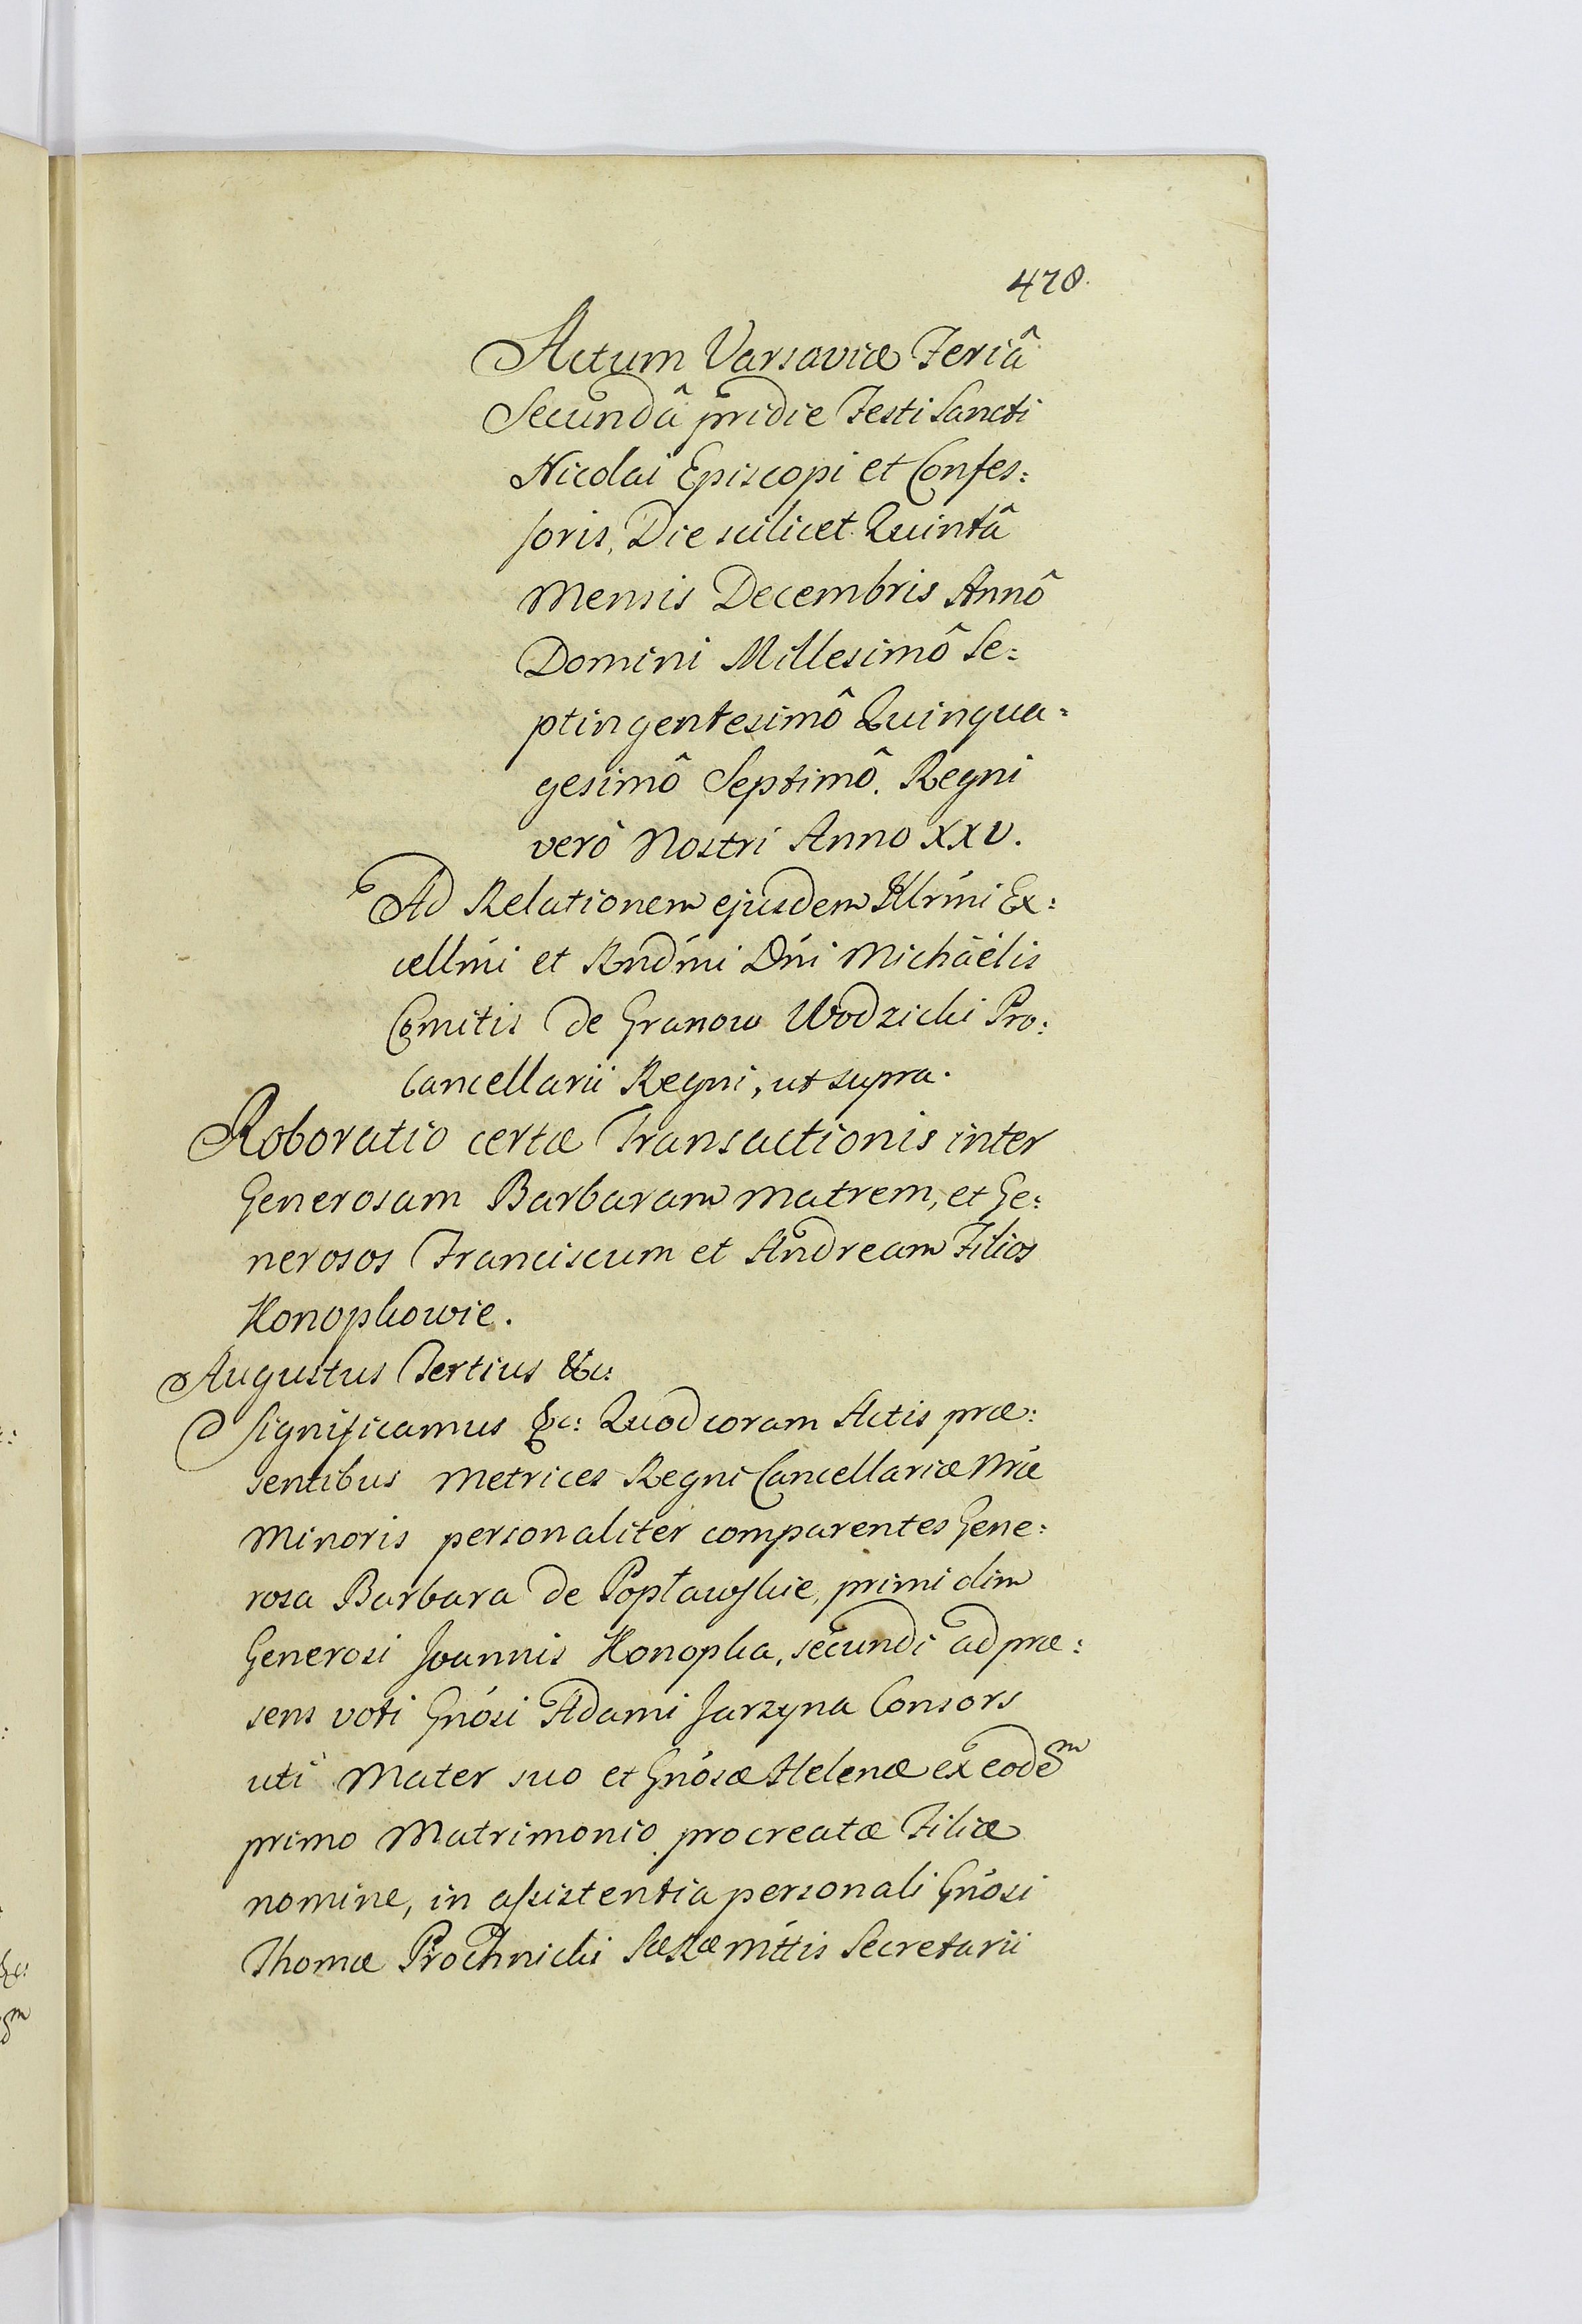 478.
Actum Varsaviæ Feriâ
Secundâ pridie Festi Sancti
Nicolai Episcopi et Confes:
soris, Die scilicet Quintâ
Mensis Decembris Annô
Domini Millesimô Se:
ptingentesimô Quinqua:
gesimô Septimô. Regni
verò Nostri Anno XXV.
Ad Relationem ejusdem Illrmi Ex:
cellmi et Rndmi Dni Michaëlis
Comitis de Granow Wodzicki Pro:
Cancellarii Regni, ut supra.
Roboratio certæ Transactionis inter
Generosam Barbaram Matrem, et Ge:
nerosos Franciscum et Andream Filios
Konopkowie.
Augustus Tertius &c:
Significamus &c: Quod coram Actis præ:
sentibus Metrices Regni Cancellariæ Nræ
Minoris personaliter comparentes Gene:
rosa Barbara de Popławskie, primi olim
Generosi Joannis Konopka, secundi ad præ:
sens voti Gnosi Adami Jarzyna Consors
uti Mater suo et Gnosæ Helenæ ex eodem
primo Matrimonio procreatæ Filiæ
nomine, in assistentia personali Gnosi
Thomæ Prochnicki Sæ Ræ Mttis Secretarii